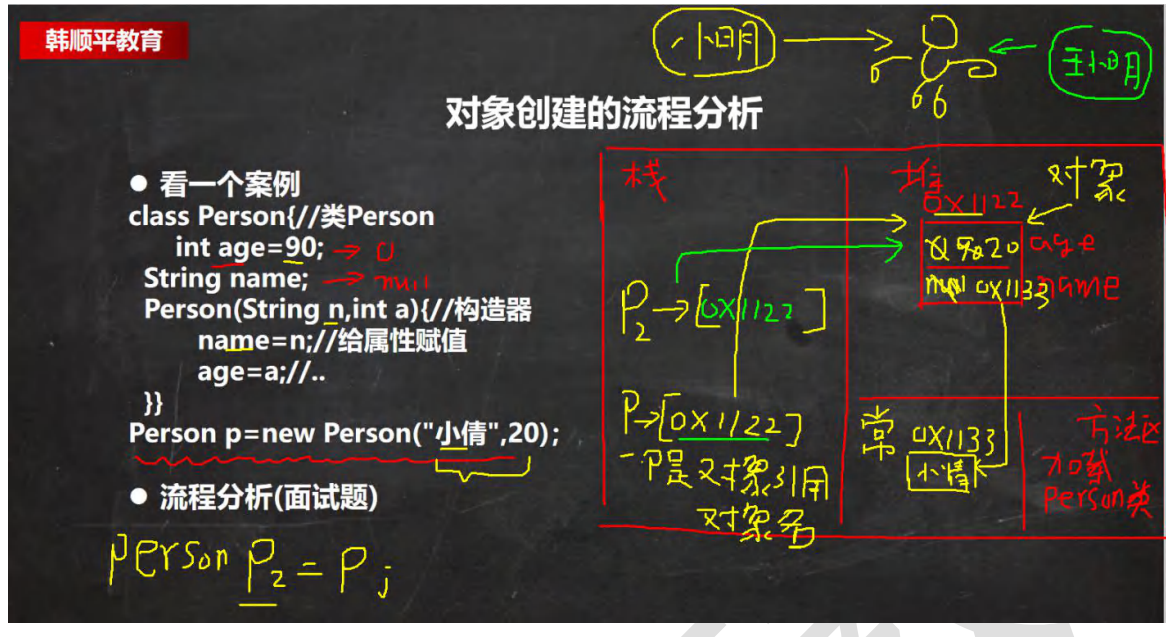 韩顺平教育
小明
王小明
66
对象创建的流程分析
● 看一个案例
class Person{//类Person
int age=90; → 0
String name; → null
Person(String n,int a){//构造器
name=n;//给属性赋值
age=a;//..
}}
Person p=new Person("小倩",20);
● 流程分析(面试题)
Person P2 = P;
栈
P2→[0X1122]
P→[0X1122]
P是对象引用
对象名
堆
对象
0X1122
0 90 20 age
null 0X1133 name
常
0X1133
小倩
方法区
加载
Person类